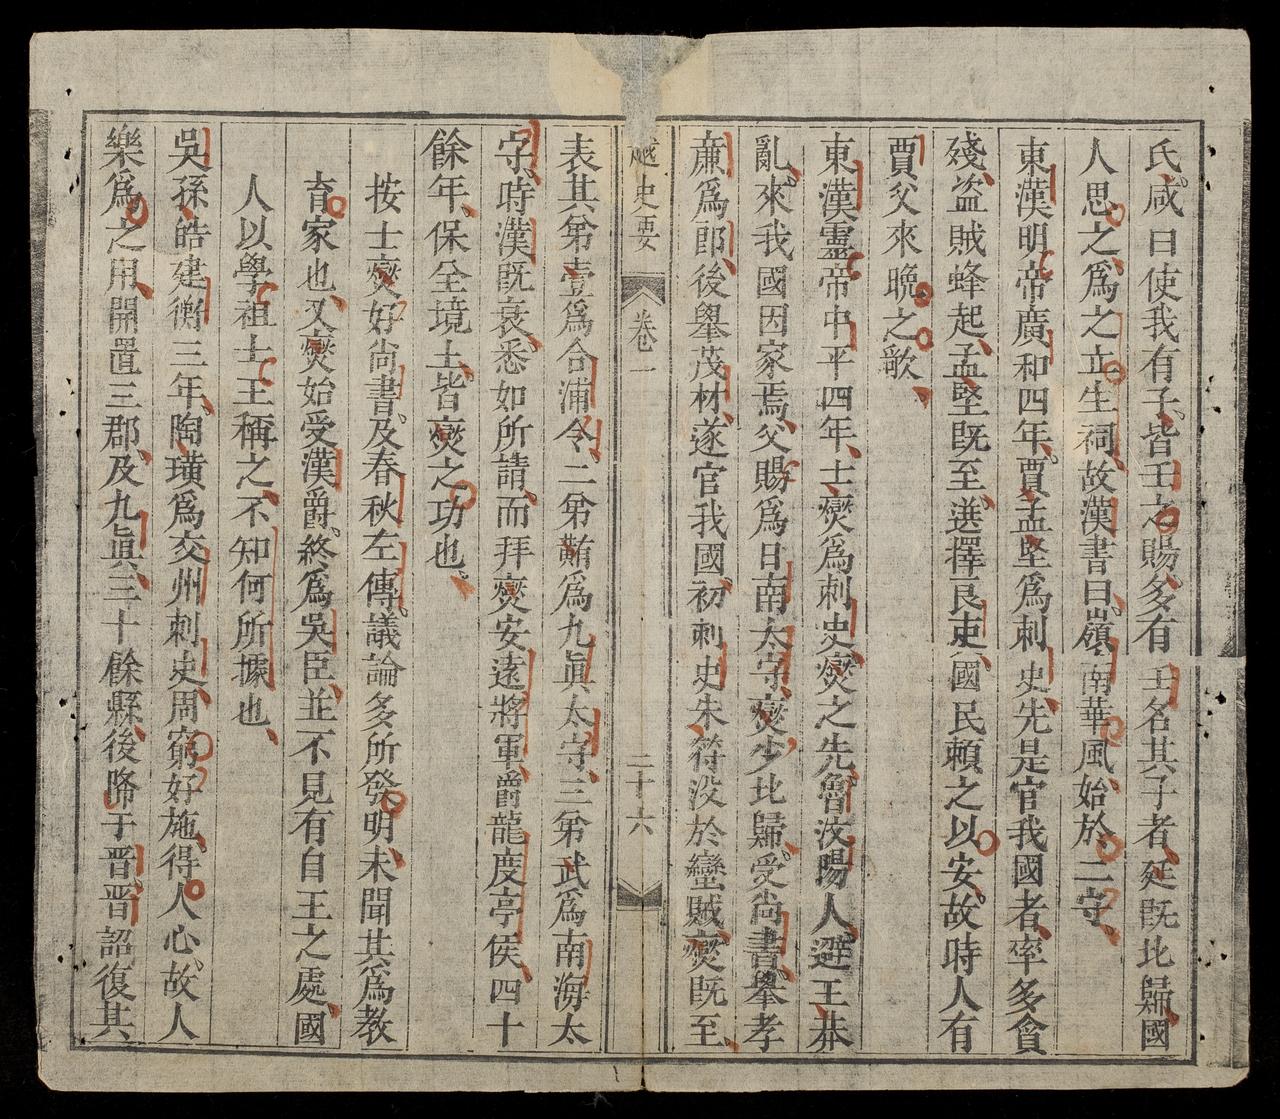 氏咸曰使我有子皆壬之賜多有壬名其子者延旣北歸國
人思之爲之立生祠故漢書曰嶺南華風始於二守
東漢明帝廣和四年賈孟堅爲刺史先是官我國者率多貪
殘盜賊蜂起孟堅旣至選擇良吏國民賴之以安故時人有
賈父來晚之歌
東漢靈帝中平四年士燮爲刺史燮之先魯汶陽人避王莽
亂來我國因家焉父賜爲日南太守燮少北歸受尙書舉孝
廉爲郎後舉茂材遂官我國初刺史朱符没於蠻賊燮旣至
越史要 卷一 二十六
表其第壹爲合浦令二第䵋爲九眞太守三第武爲南海太
守時漢旣衰悉如所請而拜燮安遠將軍爵龍度亭侯四十
餘年保全境土皆燮之功也
按士燮好尙書及春秋左傳議論多所發明未聞其爲敎
育家也又燮始受漢爵終爲吳臣並不見有自王之處國
人以學祖士王稱之不知何所據也
吳孫皓建衡三年陶璜爲交州刺史周窮好施得人心故人
樂爲之用開置三郡及九眞三十餘縣後降于晋晋詔復其